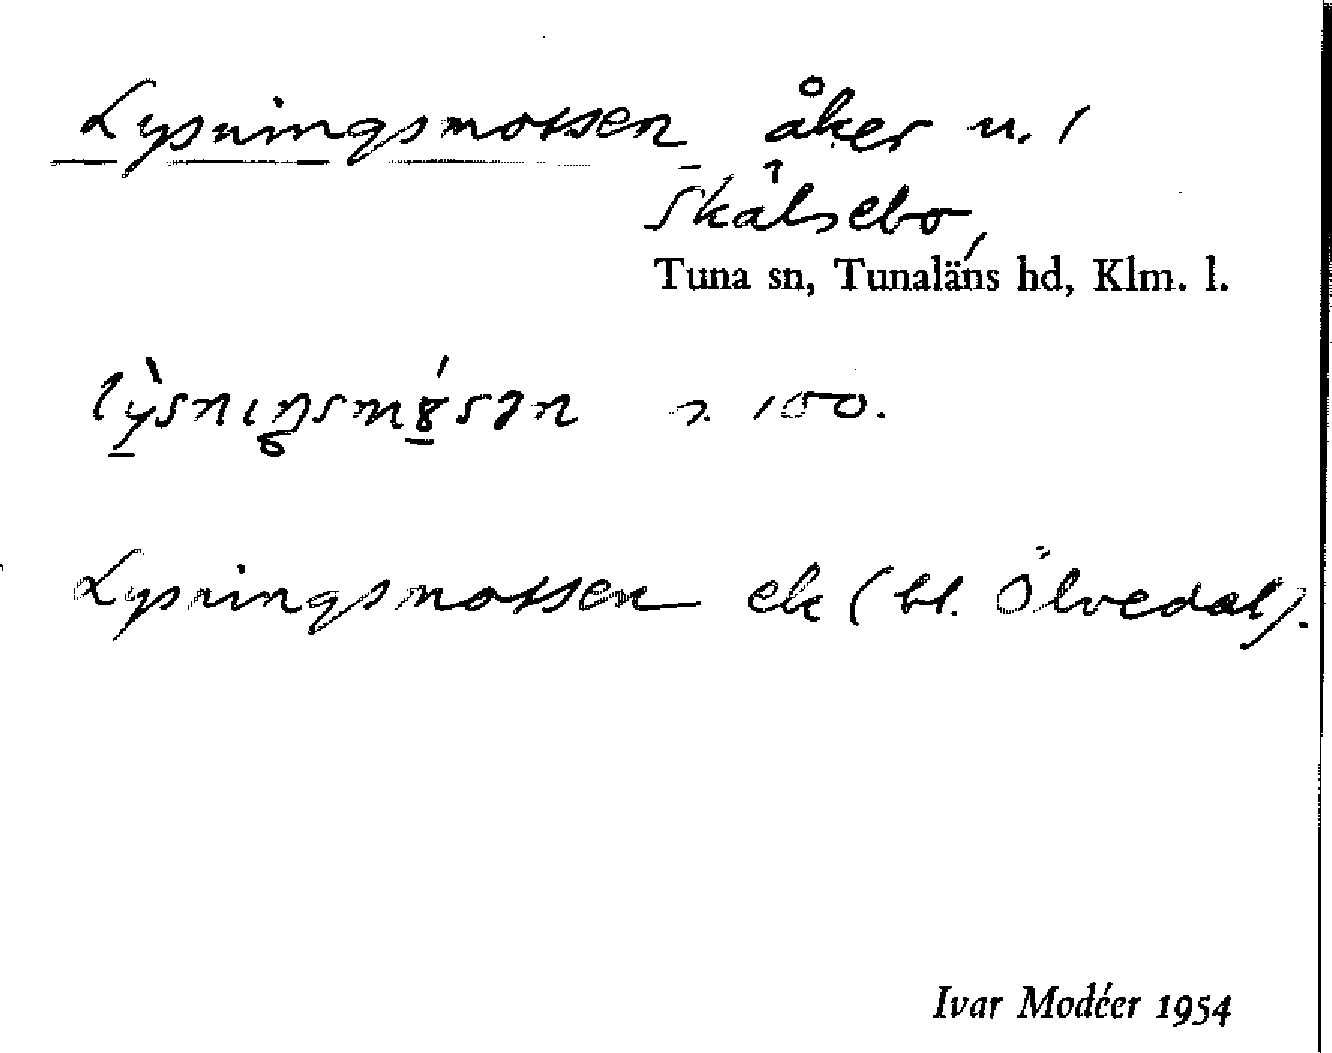 Lysningsmossen åker u. 1
Skälsebo,
Tuna sn, Tunaläns hd, Klm. l.
n. 100.
Lysningsmossen ek (bl. Ölvedal).
Ivar Modéer 1954